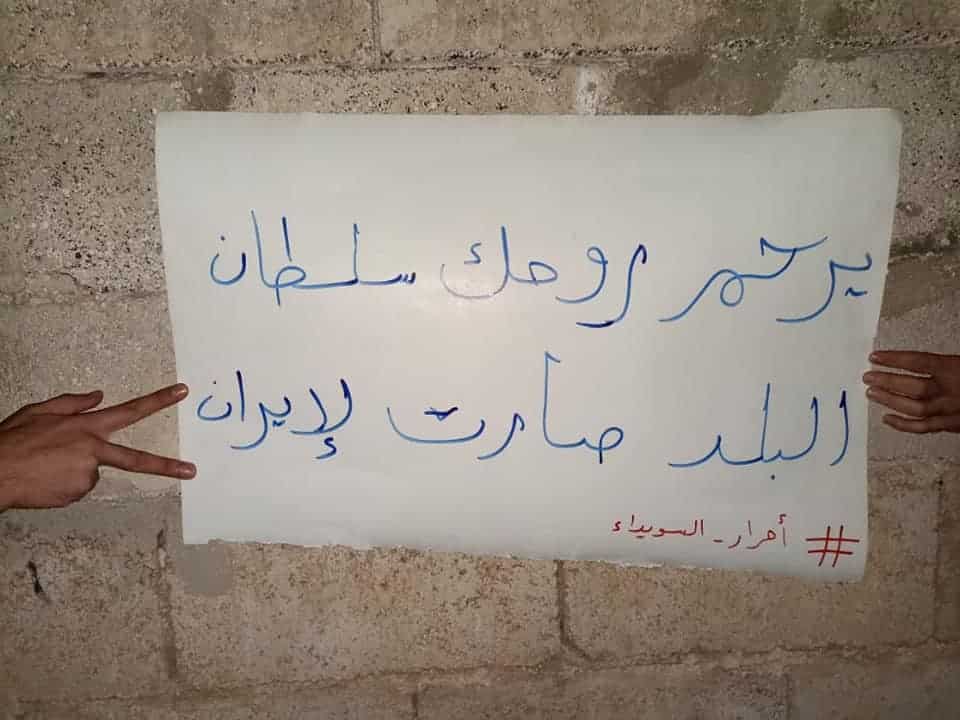 يرحم روحك سلطان
البلد صارت لإيران
# أحرار - السويداء